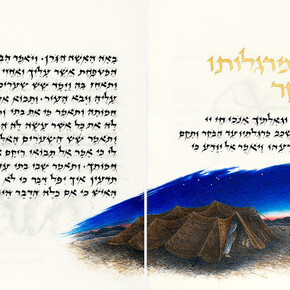 מרגלותו
קר
ך וגאלתיך אנכי חי יי
שכב מרגלותו עד הבקר ותקם
רעהו ויאמר אל יודע כי
באה האשה הגרן. ויאמר הבי
המטפחת אשר עליך ואחזי
ותאחז בה וימד שש שערים
עליה ויבא העיר. ותבוא א
חמותה ותאמר מי את בתי ו
לה את כל אשר עשה לה ה
ותאמר שש השערים האלה
לי כי אמר אל תבואי ריקם
חמותך. ותאמר שבי בתי
תדעין איך יפל דבר כי לא
האיש כי אם כלה הדבר היו